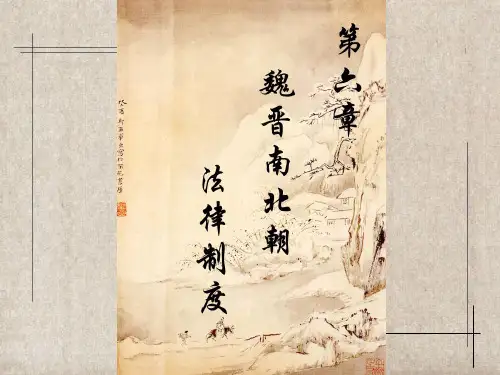 第六章
魏晋南北朝
法律制度